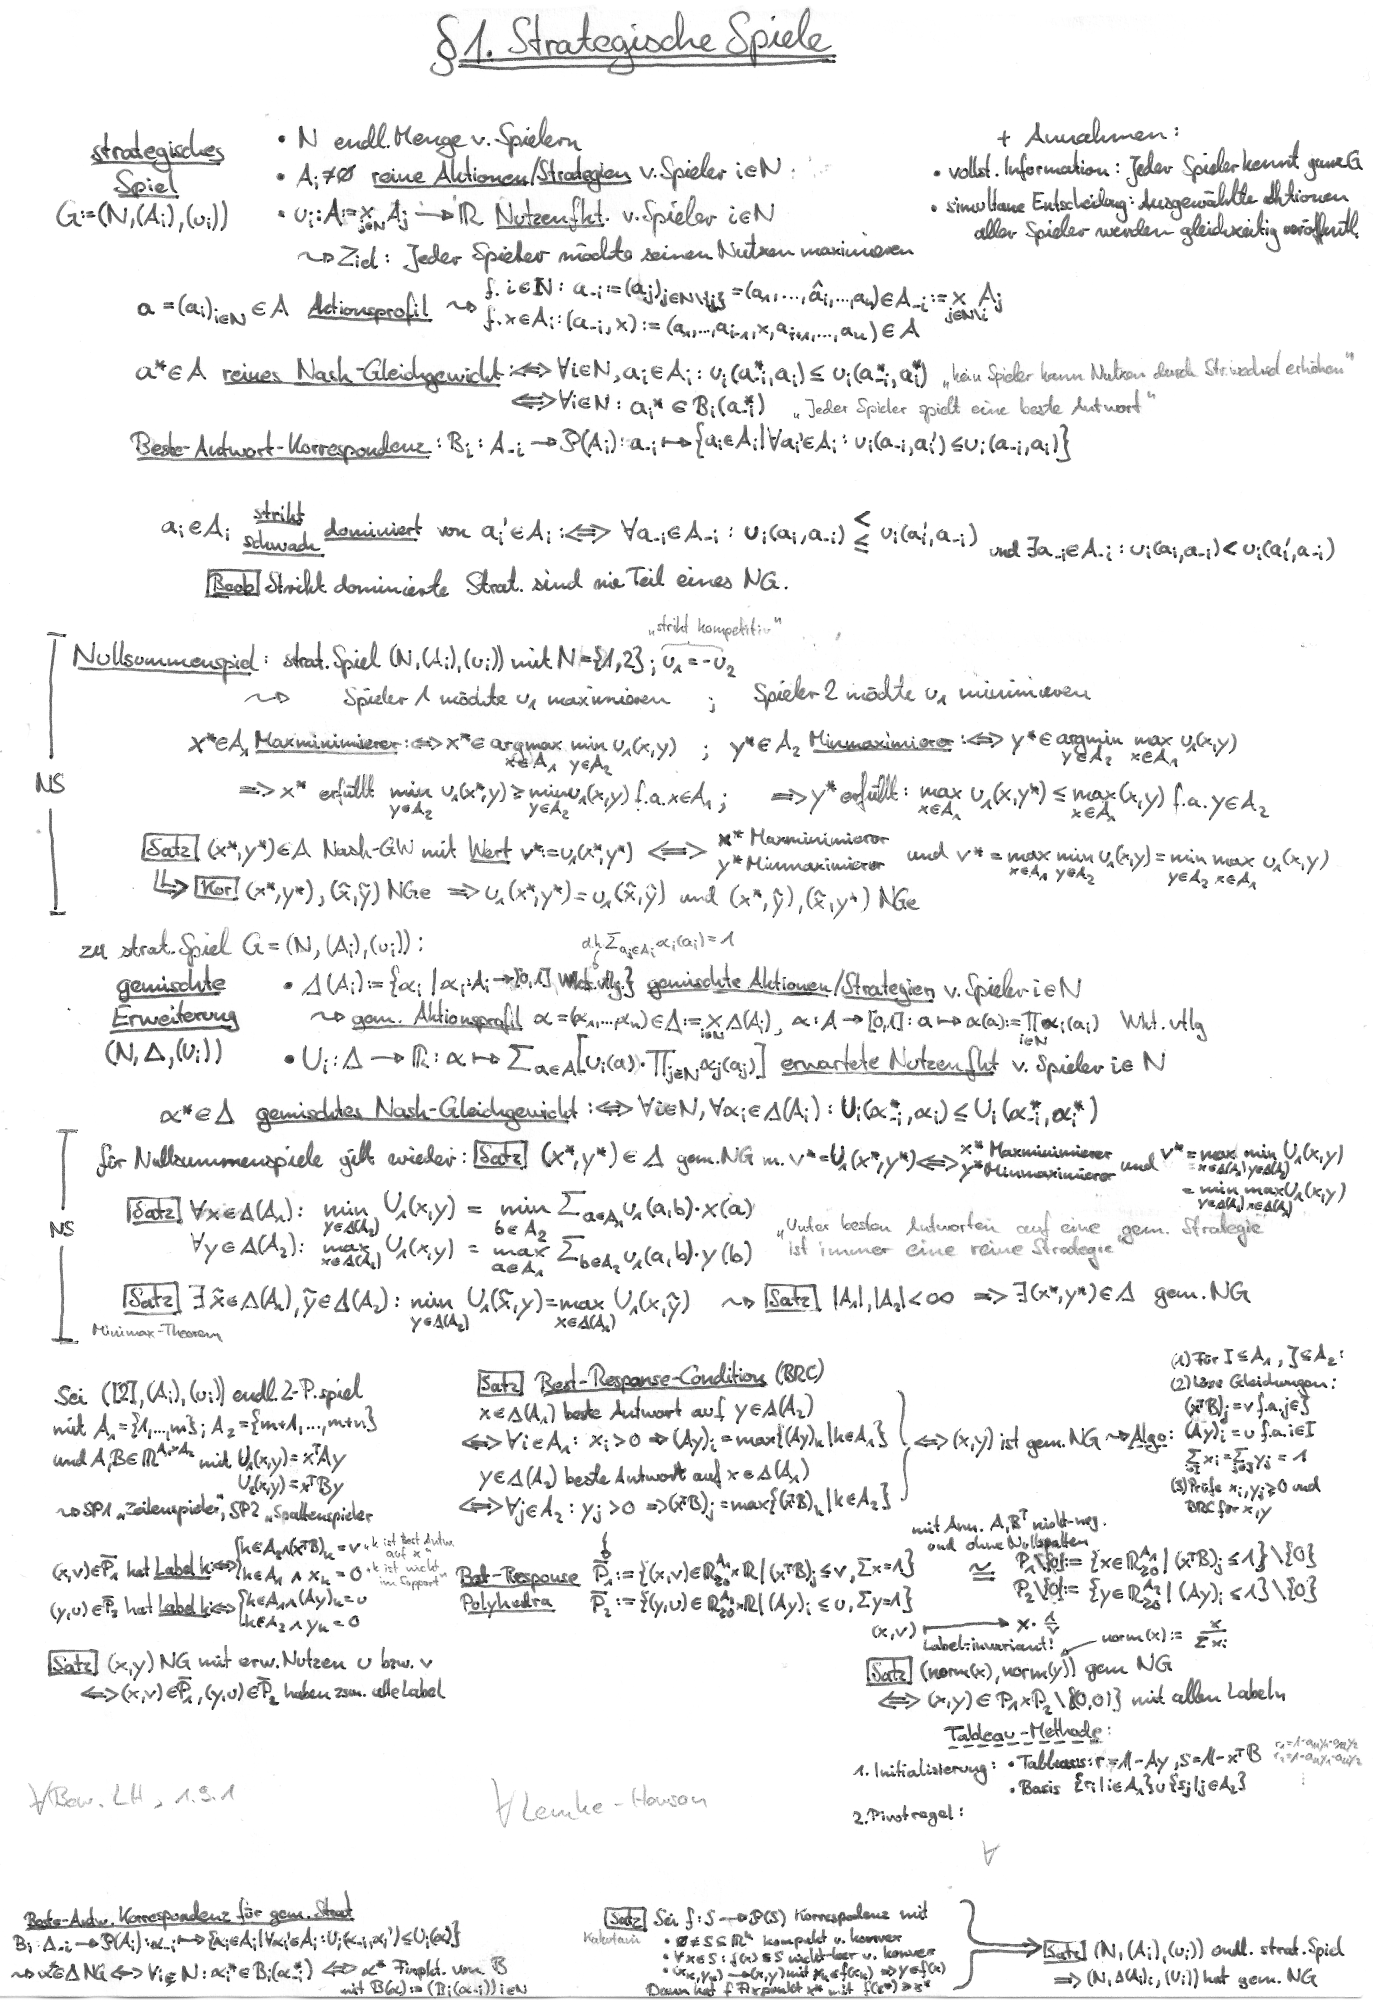 §1. Strategische Spiele
strategisches Spiel
G:=(N,(Aᵢ),(uᵢ))
• N endl. Menge v. Spielern
• Aᵢ≠∅ reine Aktionen/Strategien v. Spieler i∈N
• uᵢ: A:=×_{j∈N} Aⱼ → ℝ Nutzenfkt. v. Spieler i∈N
⇝ Ziel: Jeder Spieler möchte seinen Nutzen maximieren
+ Annahmen:
• vollst. Information: Jeder Spieler kennt ganz G
• simultane Entscheidung: Ausgewählte Aktionen
aller Spieler werden gleichzeitig veröffentl.
a=(aᵢ)_{i∈N}∈A Aktionsprofil ⇝ f. i∈N: a₋ᵢ:=(aⱼ)_{j∈N\{i}}=(a₁,...,âᵢ,...,aₙ)∈A₋ᵢ:=×_{j∈N\i} Aⱼ
f. x∈Aᵢ: (a₋ᵢ,x):=(a₁,...,aᵢ₋₁,x,aᵢ₊₁,...,aₙ)∈A
a*∈A reines Nash-Gleichgewicht :⟺ ∀i∈N, aᵢ∈Aᵢ: uᵢ(a*₋ᵢ,aᵢ) ≤ uᵢ(a*₋ᵢ,aᵢ*) „kein Spieler kann Nutzen durch Str.wechsel erhöhen"
⟺ ∀i∈N: aᵢ*∈Bᵢ(a*₋ᵢ) „Jeder Spieler spielt eine beste Antwort"
Beste-Antwort-Korrespondenz: Bᵢ: A₋ᵢ→𝒫(Aᵢ): a₋ᵢ↦{aᵢ∈Aᵢ|∀aᵢ'∈Aᵢ: uᵢ(a₋ᵢ,aᵢ')≤uᵢ(a₋ᵢ,aᵢ)}
aᵢ∈Aᵢ strikt / schwach dominiert von aᵢ'∈Aᵢ :⟺ ∀a₋ᵢ∈A₋ᵢ: uᵢ(aᵢ,a₋ᵢ) < / ≤ uᵢ(aᵢ',a₋ᵢ) und ∃a₋ᵢ∈A₋ᵢ: uᵢ(aᵢ,a₋ᵢ)<uᵢ(aᵢ',a₋ᵢ)
Beob Strikt dominierte Strat. sind nie Teil eines NG.
NS
„strikt kompetitiv"
Nullsummenspiel: strat. Spiel (N,(Aᵢ),(uᵢ)) mit N={1,2}; u₁=-u₂
⇝ Spieler 1 möchte u₁ maximieren ; Spieler 2 möchte u₁ minimieren
x*∈A₁ Maxminimierer :⟺ x*∈argmax_{x∈A₁} min_{y∈A₂} u₁(x,y) ; y*∈A₂ Minmaximierer :⟺ y*∈argmin_{y∈A₂} max_{x∈A₁} u₁(x,y)
⟹ x* erfüllt min_{y∈A₂} u₁(x*,y) ≥ min_{y∈A₂} u₁(x,y) f.a. x∈A₁ ; ⟹ y* erfüllt: max_{x∈A₁} u₁(x,y*) ≤ max_{x∈A₁}(x,y) f.a. y∈A₂
Satz (x*,y*)∈A Nash-GW mit Wert v*:=u₁(x*,y*) ⟺ x* Maxminimierer y* Minmaximierer und v*=max_{x∈A₁} min_{y∈A₂} u₁(x,y)=min_{y∈A₂} max_{x∈A₁} u₁(x,y)
↳ Kor (x*,y*),(x̃,ỹ) NGe ⟹ u₁(x*,y*)=u₁(x̃,ỹ) und (x*,ỹ),(x̃,y*) NGe
zu strat. Spiel G=(N,(Aᵢ),(uᵢ)):
d.h. Σ_{aᵢ∈Aᵢ} αᵢ(aᵢ)=1
gemischte Erweiterung
(N,Δ,(Uᵢ))
• Δ(Aᵢ):={αᵢ | αᵢ:Aᵢ→[0,1] Wkt.vtlg.} gemischte Aktionen/Strategien v. Spieler i∈N
⇝ gem. Aktionsprofil α=(α₁,...,αₙ)∈Δ:=×_{i∈N} Δ(Aᵢ), α: A→[0,1]: a↦α(a):=∏_{i∈N} αᵢ(aᵢ) Wkt.vtlg
• Uᵢ: Δ→ℝ: α↦Σ_{a∈A}[uᵢ(a)·∏_{j∈N} αⱼ(aⱼ)] erwartete Nutzenfkt v. Spieler i∈N
α*∈Δ gemischtes Nash-Gleichgewicht :⟺ ∀i∈N, ∀αᵢ∈Δ(Aᵢ): Uᵢ(α*₋ᵢ,αᵢ) ≤ Uᵢ(α*₋ᵢ,αᵢ*)
NS
für Nullsummenspiele gilt wieder: Satz (x*,y*)∈Δ gem. NG m. v*=U₁(x*,y*) ⟺ x* Maxminimierer y* Minmaximierer und v*=max_{x∈Δ(A₁)} min_{y∈Δ(A₂)} U₁(x,y)
=min_{y∈Δ(A₂)} max_{x∈Δ(A₁)} U₁(x,y)
Satz ∀x∈Δ(A₁): min_{y∈Δ(A₂)} U₁(x,y) = min_{b∈A₂} Σ_{a∈A₁} u₁(a,b)·x(a)
∀y∈Δ(A₂): max_{x∈Δ(A₁)} U₁(x,y) = max_{a∈A₁} Σ_{b∈A₂} u₁(a,b)·y(b)
„Unter besten Antworten auf eine gem. Strategie
ist immer eine reine Strategie"
Satz ∃x̃∈Δ(A₁), ỹ∈Δ(A₂): min_{y∈Δ(A₂)} U₁(x̃,y)=max_{x∈Δ(A₁)} U₁(x,ỹ) ⇝ Satz |A₁|,|A₂|<∞ ⟹ ∃(x*,y*)∈Δ gem. NG
Minimax-Theorem
Sei ([2],(Aᵢ),(uᵢ)) endl. 2-P.spiel
mit A₁={1,...,m}; A₂={m+1,...,m+n}
und A,B∈ℝ^{A₁×A₂} mit U₁(x,y)=xᵀAy
U₂(x,y)=xᵀBy
⇝ SP1 „Zeilenspieler", SP2 „Spaltenspieler
Satz Best-Response-Condition (BRC)
x∈Δ(A₁) beste Antwort auf y∈Δ(A₂)
⟺ ∀i∈A₁: xᵢ>0 ⟹ (Ay)ᵢ=max{(Ay)ₖ|k∈A₁}
y∈Δ(A₂) beste Antwort auf x∈Δ(A₁)
⟺ ∀j∈A₂: yⱼ>0 ⟹ (xᵀB)ⱼ=max{(xᵀB)ₖ|k∈A₂}
⟺ (x,y) ist gem. NG ⇝ Algo:
(1) Für I⊆A₁, J⊆A₂:
(2) Löse Gleichungen:
(xᵀB)ⱼ=v f.a. j∈J
(Ay)ᵢ=u f.a. i∈I
Σxᵢ=Σyⱼ=1
(3) Prüfe xᵢ,yⱼ≥0 und
BRC für x,y
(x,v)∈P̄₁ hat Label k :⟺ {k∈A₂∧(xᵀB)ₖ=v „k ist Best Antw. auf x"
k∈A₁∧xₖ=0 „k ist nicht im Support"
(y,u)∈P̄₂ hat Label k :⟺ {k∈A₁∧(Ay)ₖ=u
k∈A₂∧yₖ=0
Best-Response Polyhedra
P̄₁:={(x,v)∈ℝ^{A₁}_{≥0}×ℝ|(xᵀB)ⱼ≤v, Σx=1}
P̄₂:={(y,u)∈ℝ^{A₂}_{≥0}×ℝ|(Ay)ᵢ≤u, Σy=1}
mit Ann. A,Bᵀ nicht-neg.
und ohne Nullspalten
≅ P₁\{0}:={x∈ℝ^{A₁}_{≥0}|(xᵀB)ⱼ≤1}\{0}
P₂\{0}:={y∈ℝ^{A₂}_{≥0}|(Ay)ᵢ≤1}\{0}
(x,v) ↦ x·1/v
Label-invariant!
norm(x):= x/Σxᵢ
Satz (x,y) NG mit erw. Nutzen u bzw. v
⟺ (x,v)∈P̄₁, (y,u)∈P̄₂ haben zsm. alle Label
Satz (norm(x),norm(y)) gem NG
⟺ (x,y)∈P₁×P₂\{(0,0)} mit allen Labeln
Tableau-Methode:
1. Initialisierung: • Tableaus: r=1-Ay, s=1-xᵀB
• Basis {rᵢ|i∈A₁}∪{sⱼ|j∈A₂}
2. Pivotregel:
∀ Bew. LH, 1.9.1
∀ Lemke-Howson
∀
Beste-Antw. Korrespondenz für gem. Strat
Bᵢ: Δ₋ᵢ→𝒫(Aᵢ): α₋ᵢ↦{αᵢ∈Aᵢ|∀αᵢ'∈Aᵢ: Uᵢ(α₋ᵢ,αᵢ')≤Uᵢ(α)}
⇝ α*∈Δ NG ⟺ ∀i∈N: αᵢ*∈Bᵢ(α*₋ᵢ) ⟺ α* Fixpkt. von B
mit B(α):=(Bᵢ(α₋ᵢ))_{i∈N}
Satz Sei f: S→𝒫(S) Korrespondenz mit
Kakutani
• ∅≠S⊆ℝⁿ kompakt u. konvex
• ∀x∈S: f(x)⊆S nicht-leer u. konvex
• (xₖ,yₖ)→(x,y) mit yₖ∈f(xₖ) ⟹ y∈f(x)
Dann hat f Fixpunkt x* mit f(x*)∋x*
Satz (N,(Aᵢ),(uᵢ)) endl. strat. Spiel
⟹ (N,Δ(Aᵢ)ᵢ,(Uᵢ)) hat gem. NG